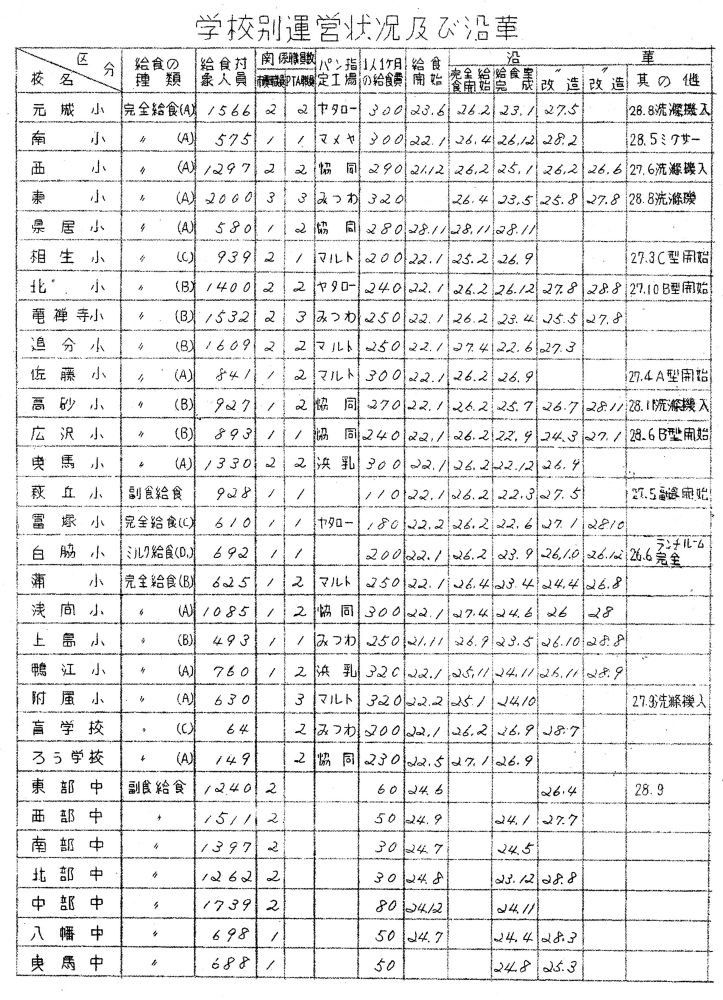 学校別運営状況及び沿革
区分 校名 給食の種類 給食対象人員 関係職員数 パン指定工場 1人1ヶ月の給食費 給食開始 沿革
市職員 PTA職員 完全給食開始 給食室完成 改造 〃改造 其の他
元城小 完全給食(A) 1566 2 2 ヤタロー 300 23.6 26.2 23.1 27.5 28.8洗滌機入
南小 〃 (A) 575 1 1 マメヤ 300 22.1 26.4 26.12 28.2 28.5ミクサー
西小 〃 (A) 1297 2 2 協同 290 21.12 26.2 25.1 26.2 26.6 27.6洗滌機入
東小 〃 (A) 2000 3 3 みつわ 320 26.4 23.5 25.8 27.8 28.8洗滌機
県居小 〃 (A) 580 1 2 協同 280 28.11 28.11 28.11
相生小 〃 (C) 939 2 1 マルト 200 22.1 25.2 26.9 27.3C型開始
北小 〃 (B) 1400 2 2 ヤタロー 240 22.1 26.2 26.12 27.8 28.8 27.10B型開始
竜禅寺小 〃 (B) 1532 2 3 みつわ 250 22.1 26.2 23.4 25.5 27.8
追分小 〃 (B) 1609 2 2 マルト 250 22.1 27.4 22.6 27.3
佐藤小 〃 (A) 841 1 2 マルト 300 22.1 26.2 26.9 27.4A型開始
高砂小 〃 (B) 927 1 2 協同 270 22.1 26.2 25.7 26.7 28.11 28.11洗滌機入
広沢小 〃 (B) 893 1 1 協同 240 22.1 26.2 22.9 24.3 27.1 28.6B型開始
曳馬小 〃 (A) 1330 2 2 浜乳 300 22.1 26.2 22.12 26.9
萩丘小 副食給食 928 1 1 110 22.1 26.2 22.3 27.5 27.5副食開始
冨塚小 完全給食(C) 610 1 1 ヤタロー 180 22.2 26.2 22.6 27.1 28.10
白脇小 ミルク給食(D.) 692 1 1 200 22.1 26.2 23.9 26.10 26.12 26.6ランチルーム完全
蒲小 完全給食(B) 625 1 2 マルト 250 22.1 26.4 23.4 24.4 26.8
浅間小 〃 (A) 1085 1 2 協同 300 22.1 27.4 24.6 26 28
上島小 〃 (B) 493 1 1 みつわ 250 21.11 26.9 23.5 26.10 28.8
鴨江小 〃 (A) 760 1 2 浜乳 320 22.1 25.11 24.11 26.11 28.9
附属小 〃 (A) 630 3 マルト 320 22.2 25.1 24.10 27.9洗滌機入
盲学校 〃 (C) 64 2 みつわ 200 22.1 26.2 26.9 28.7
ろう学校 〃 (A) 149 2 協同 230 22.5 27.1 26.9
東部中 副食給食 1240 2 60 24.6 26.4 28.9
西部中 〃 1511 2 50 24.9 24.1 27.7
南部中 〃 1397 2 30 24.7 24.5
北部中 〃 1262 2 30 24.8 23.12 28.8
中部中 〃 1739 2 80 24.12 24.11
八幡中 〃 698 1 50 24.7 24.4 28.3
曳馬中 〃 688 1 50 24.8 25.3